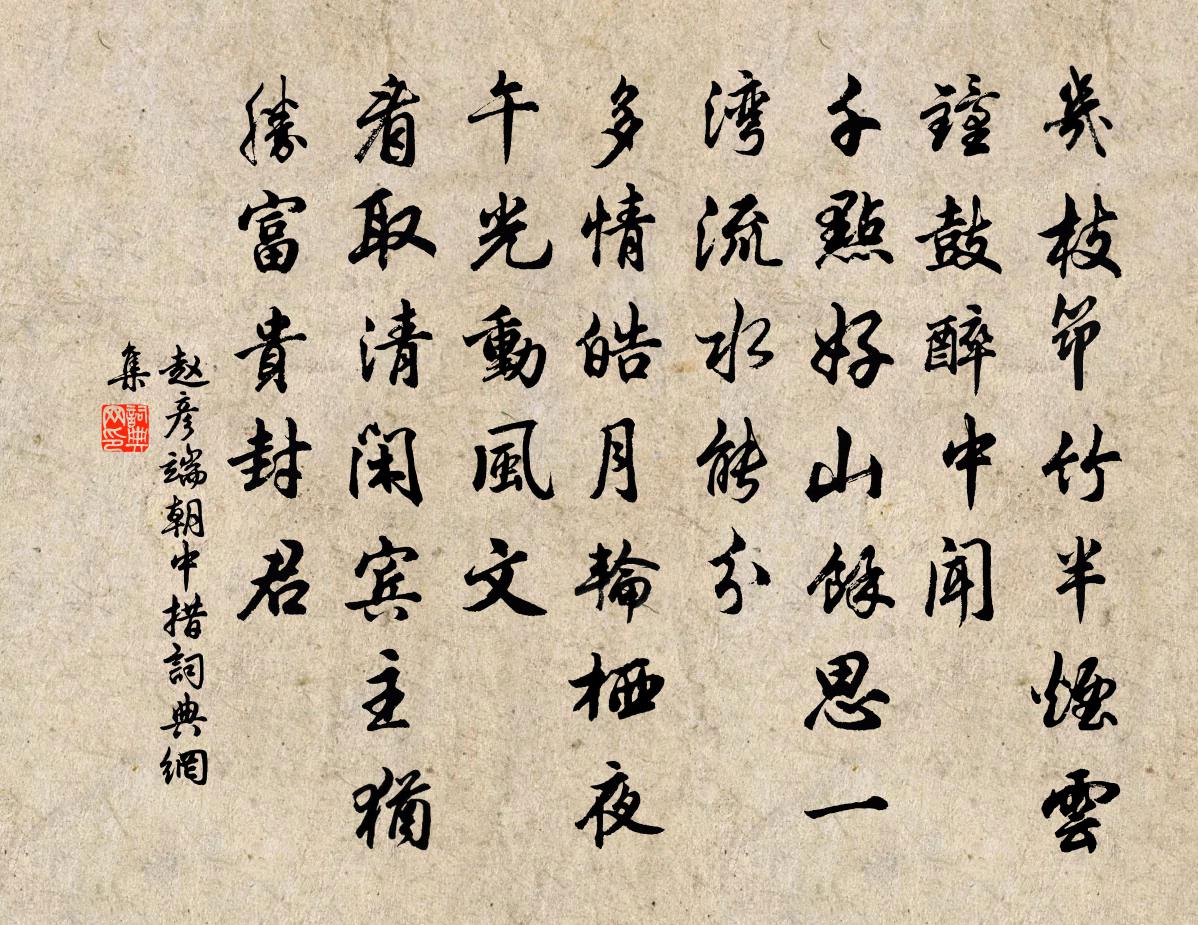 幾枝笻竹半煙雲
鐘鼓醉中聞
千點好山餘思一
湾流水能分
多情皓月輪栖夜
午光動風文
看取清閑賓主猶
勝富貴封君
赵彦端朝中措詞典網
集
詞典
网印